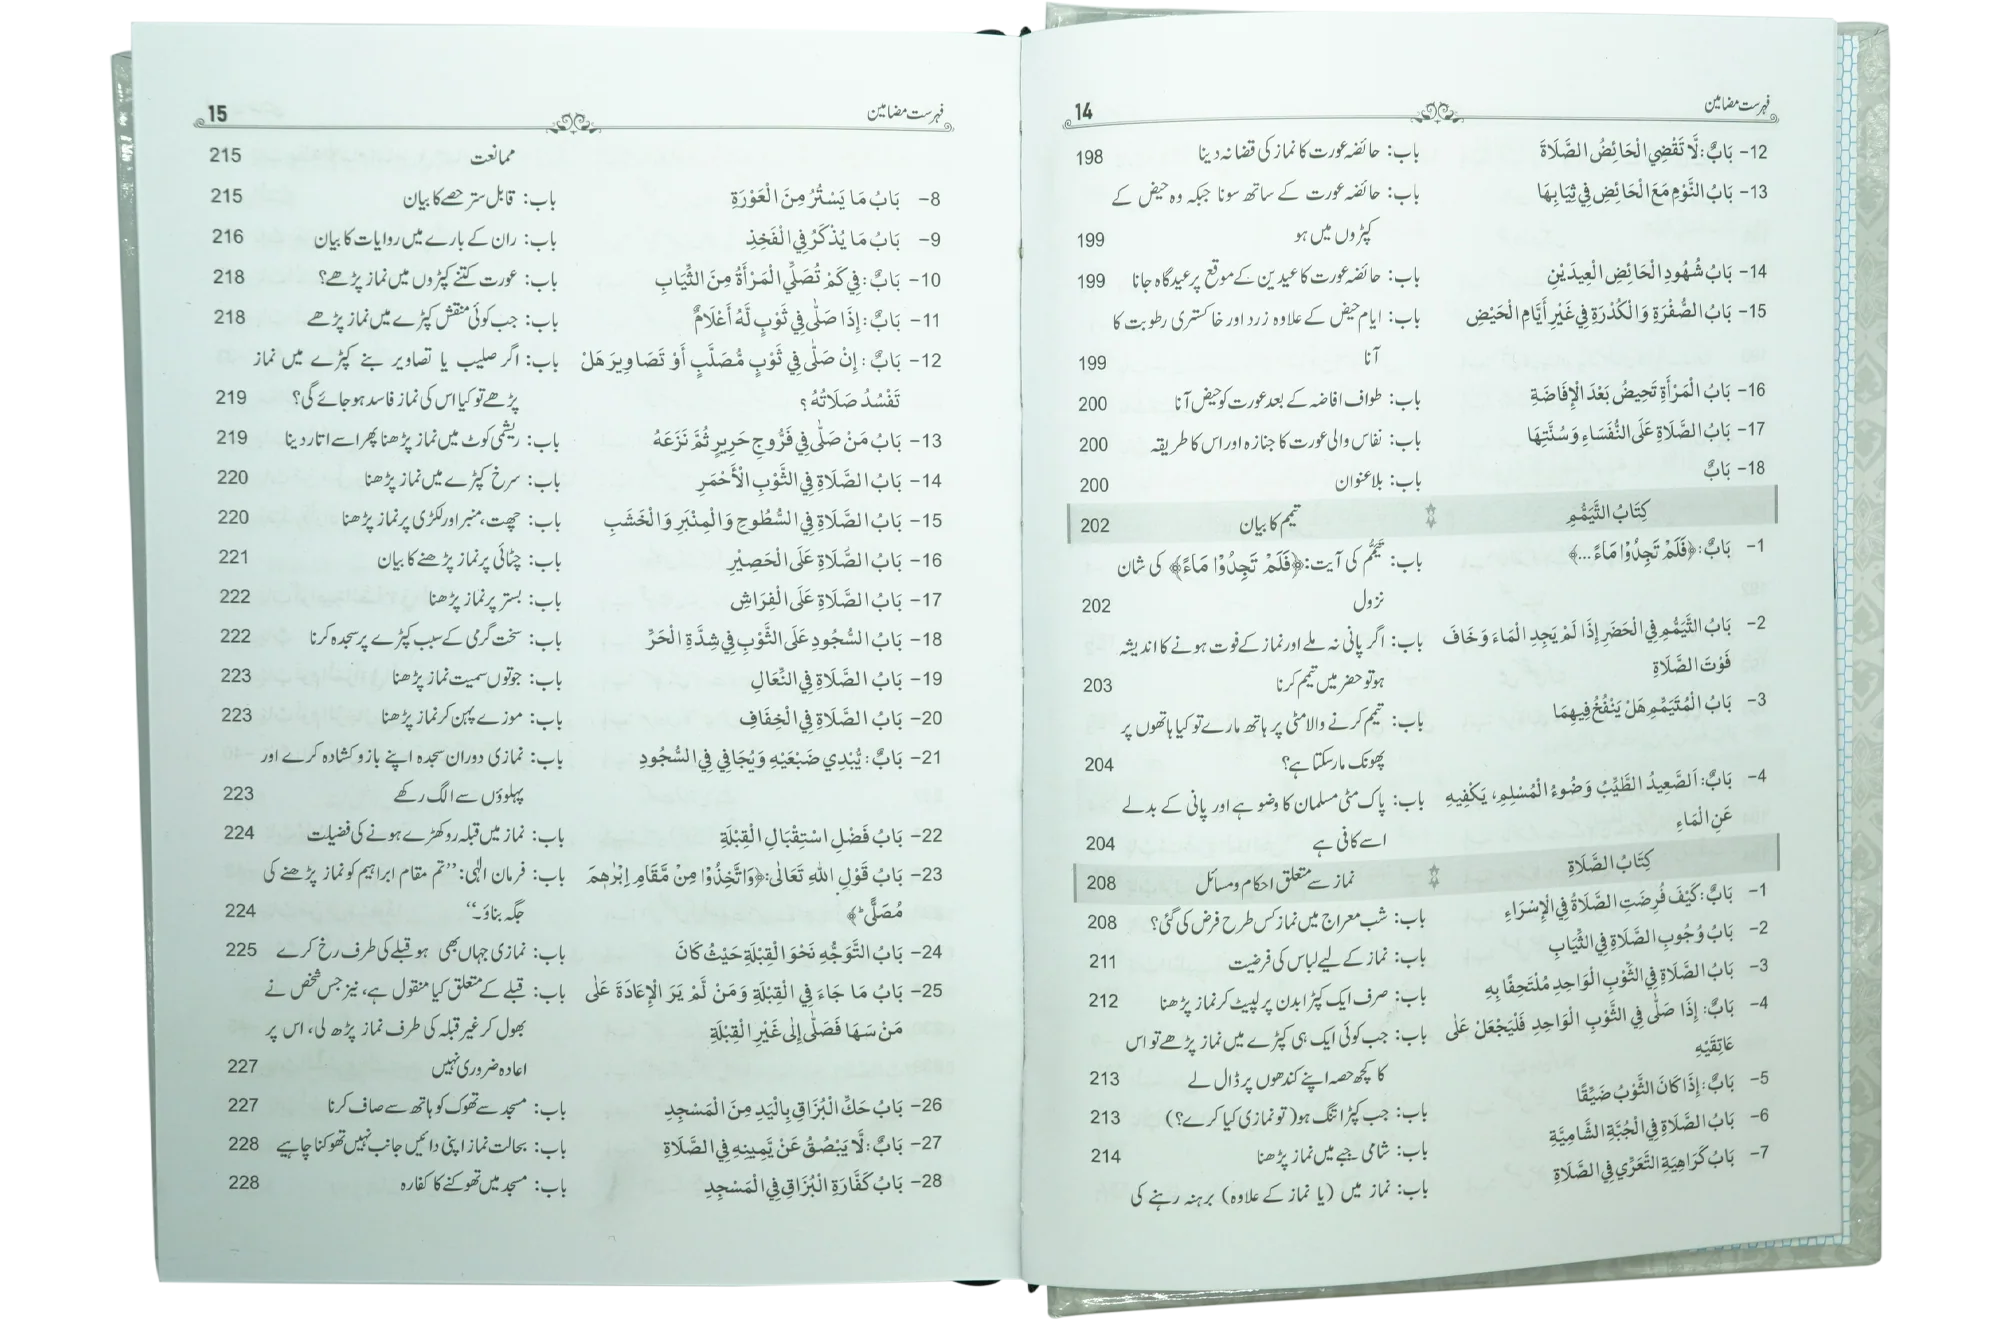 فہرست مضامین 14
12- بَابٌ: لَّا تَقْضِي الْحَائِضُ الصَّلَاةَ باب: حائضہ عورت کا نماز کی قضا نہ دینا 198
13- بَابُ النَّوْمِ مَعَ الْحَائِضِ فِي ثِيَابِهَا باب: حائضہ عورت کے ساتھ سونا جبکہ وہ حیض کے
کپڑوں میں ہو 199
14- بَابُ شُهُودِ الْحَائِضِ الْعِيدَيْنِ باب: حائضہ عورت کا عیدین کے موقع پر عیدگاہ جانا 199
15- بَابُ الصُّفْرَةِ وَالْكُدْرَةِ فِي غَيْرِ أَيَّامِ الْحَيْضِ باب: ایام حیض کے علاوہ زرد اور خاکستری رطوبت کا
آنا 199
16- بَابُ الْمَرْأَةِ تَحِيضُ بَعْدَ الْإِفَاضَةِ باب: طواف افاضہ کے بعد عورت کو حیض آنا 200
17- بَابُ الصَّلَاةِ عَلَى النُّفَسَاءِ وَسُنَّتِهَا باب: نفاس والی عورت کا جنازہ اور اس کا طریقہ 200
18- بَابٌ باب: بلاعنوان 200
كِتَابُ التَّيَمُّمِ تیمم کا بیان 202
1- بَابٌ: ﴿فَلَمْ تَجِدُوْا مَاءً ...﴾ باب: تَیَمُّم کی آیت: ﴿فَلَمْ تَجِدُوْا مَاءً﴾ کی شان
نزول 202
2- بَابُ التَّيَمُّمِ فِي الْحَضَرِ إِذَا لَمْ يَجِدِ الْمَاءَ وَخَافَ باب: اگر پانی نہ ملے اور نماز کے فوت ہونے کا اندیشہ
فَوْتَ الصَّلَاةِ ہو تو حضر میں تیمم کرنا 203
3- بَابُ الْمُتَيَمِّمِ هَلْ يَنْفُخُ فِيهِمَا باب: تیمم کرنے والا مٹی پر ہاتھ مارے تو کیا ہاتھوں پر
پھونک مار سکتا ہے؟ 204
4- بَابٌ: اَلصَّعِيدُ الطَّيِّبُ وَضُوءُ الْمُسْلِمِ، يَكْفِيهِ باب: پاک مٹی مسلمان کا وضو ہے اور پانی کے بدلے
عَنِ الْمَاءِ اسے کافی ہے 204
كِتَابُ الصَّلَاةِ نماز سے متعلق احکام و مسائل 208
1- بَابٌ: كَيْفَ فُرِضَتِ الصَّلَاةُ فِي الْإِسْرَاءِ باب: شب معراج میں نماز کس طرح فرض کی گئی؟ 208
2- بَابُ وُجُوبِ الصَّلَاةِ فِي الثِّيَابِ باب: نماز کے لیے لباس کی فرضیت 211
3- بَابُ الصَّلَاةِ فِي الثَّوْبِ الْوَاحِدِ مُلْتَحِفًا بِهِ باب: صرف ایک کپڑا بدن پر لپیٹ کر نماز پڑھنا 212
4- بَابٌ: إِذَا صَلَّى فِي الثَّوْبِ الْوَاحِدِ فَلْيَجْعَلْ عَلٰى باب: جب کوئی ایک ہی کپڑے میں نماز پڑھے تو اس
عَاتِقَيْهِ کا کچھ حصہ اپنے کندھوں پر ڈال لے 213
5- بَابٌ: إِذَا كَانَ الثَّوْبُ ضَيِّقًا باب: جب کپڑا تنگ ہو (تو نمازی کیا کرے؟) 213
6- بَابُ الصَّلَاةِ فِي الْجُبَّةِ الشَّامِيَّةِ باب: شامی جبے میں نماز پڑھنا 214
7- بَابُ كَرَاهِيَةِ التَّعَرِّي فِي الصَّلَاةِ باب: نماز میں (یا نماز کے علاوہ) برہنہ رہنے کی
فہرست مضامین 15
ممانعت 215
8- بَابُ مَا يَسْتُرُ مِنَ الْعَوْرَةِ باب: قابل ستر حصے کا بیان 215
9- بَابُ مَا يُذْكَرُ فِي الْفَخِذِ باب: ران کے بارے میں روایات کا بیان 216
10- بَابٌ: فِي كَمْ تُصَلِّي الْمَرْأَةُ مِنَ الثِّيَابِ باب: عورت کتنے کپڑوں میں نماز پڑھے؟ 218
11- بَابٌ: إِذَا صَلّٰى فِي ثَوْبٍ لَّهُ أَعْلَامٌ باب: جب کوئی منقش کپڑے میں نماز پڑھے 218
12- بَابٌ: إِنْ صَلّٰى فِي ثَوْبٍ مُّصَلَّبٍ أَوْ تَصَاوِيرَ هَلْ باب: اگر صلیب یا تصاویر بنے کپڑے میں نماز
تَفْسُدُ صَلَاتُهُ؟ پڑھے تو کیا اس کی نماز فاسد ہو جائے گی؟ 219
13- بَابُ مَنْ صَلّٰى فِي فَرُّوجِ حَرِيرٍ ثُمَّ نَزَعَهُ باب: ریشمی کوٹ میں نماز پڑھنا پھر اسے اتار دینا 219
14- بَابُ الصَّلَاةِ فِي الثَّوْبِ الْأَحْمَرِ باب: سرخ کپڑے میں نماز پڑھنا 220
15- بَابُ الصَّلَاةِ فِي السُّطُوحِ وَالْمِنْبَرِ وَالْخَشَبِ باب: چھت، منبر اور لکڑی پر نماز پڑھنا 220
16- بَابُ الصَّلَاةِ عَلَى الْحَصِيْرِ باب: چٹائی پر نماز پڑھنے کا بیان 221
17- بَابُ الصَّلَاةِ عَلَى الْفِرَاشِ باب: بستر پر نماز پڑھنا 222
18- بَابُ السُّجُودِ عَلَى الثَّوْبِ فِي شِدَّةِ الْحَرِّ باب: سخت گرمی کے سبب کپڑے پر سجدہ کرنا 222
19- بَابُ الصَّلَاةِ فِي النِّعَالِ باب: جوتوں سمیت نماز پڑھنا 223
20- بَابُ الصَّلَاةِ فِي الْخِفَافِ باب: موزے پہن کر نماز پڑھنا 223
21- بَابٌ: يُبْدِي ضَبْعَيْهِ وَيُجَافِي فِي السُّجُودِ باب: نمازی دوران سجدہ اپنے بازو کشادہ کرے اور
پہلوؤں سے الگ رکھے 223
22- بَابُ فَضْلِ اسْتِقْبَالِ الْقِبْلَةِ باب: نماز میں قبلہ رو کھڑے ہونے کی فضیلت 224
23- بَابُ قَوْلِ اللهِ تَعَالٰى: ﴿وَاتَّخِذُوْا مِنْ مَّقَامِ اِبْرٰهِمَ باب: فرمان الٰہی: ’’تم مقام ابراہیم کو نماز پڑھنے کی
مُصَلًّى ؕ﴾ جگہ بناؤ۔‘‘ 224
24- بَابُ التَّوَجُّهِ نَحْوَ الْقِبْلَةِ حَيْثُ كَانَ باب: نمازی جہاں بھی ہو قبلے کی طرف رخ کرے 225
25- بَابُ مَا جَاءَ فِي الْقِبْلَةِ وَمَنْ لَّمْ يَرَ الْإِعَادَةَ عَلٰى باب: قبلے کے متعلق کیا منقول ہے، نیز جس شخص نے
مَنْ سَهَا فَصَلّٰى إِلٰى غَيْرِ الْقِبْلَةِ بھول کر غیر قبلہ کی طرف نماز پڑھ لی، اس پر
اعادہ ضروری نہیں 227
26- بَابُ حَكِّ الْبُزَاقِ بِالْيَدِ مِنَ الْمَسْجِدِ باب: مسجد سے تھوک کو ہاتھ سے صاف کرنا 227
27- بَابٌ: لَّا يَبْصُقْ عَنْ يَّمِينِهِ فِي الصَّلَاةِ باب: بحالت نماز اپنی دائیں جانب نہیں تھوکنا چاہیے 228
28- بَابُ كَفَّارَةِ الْبُزَاقِ فِي الْمَسْجِدِ باب: مسجد میں تھوکنے کا کفارہ 228